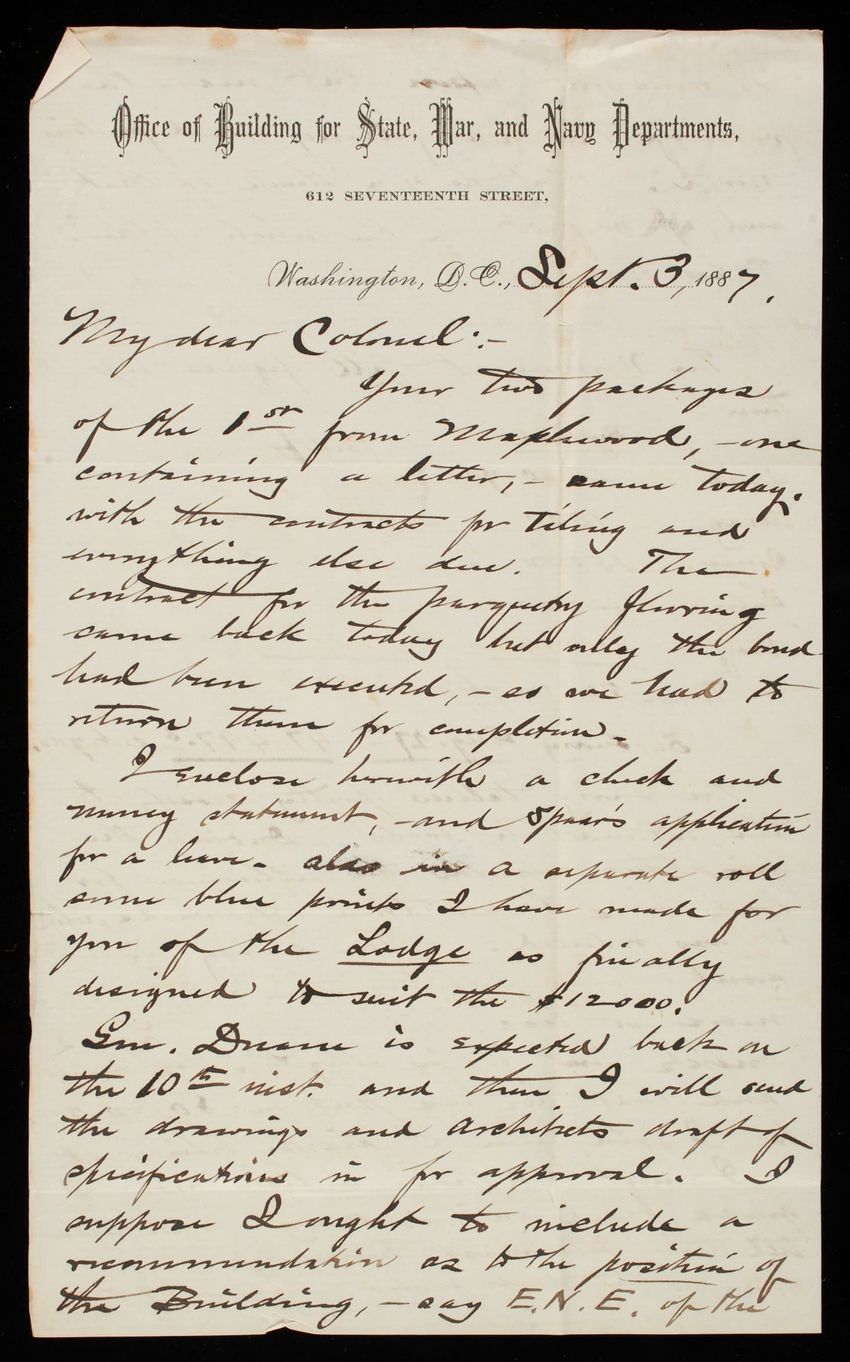 Office of Building for State, War, and Navy Departments,
612 SEVENTEENTH STREET,
Washington, D.C., Sept. 3, 1887.
My dear Colonel:-
Your two packages
of the 1st from Maplewood, - one
containing a letter, - came today.
with the contracts for tiling and
everything else due. The
contract for the parquetry flooring
came back today but only the bond
had been executed, - so we had to
return them for completion -
I enclose herewith a check and
money statement, - and Spear's application
for a leave - also in a separate roll
some blue prints I have made for
you of the Lodge as finally
designed to suit the $12000.
Gen. Duane is expected back on
the 10th inst. and then I will send
the drawings and architects draft of
specifications in for approval. I
suppose I ought to include a
recommendation as to the position of
the Building, - say E.N.E. of the